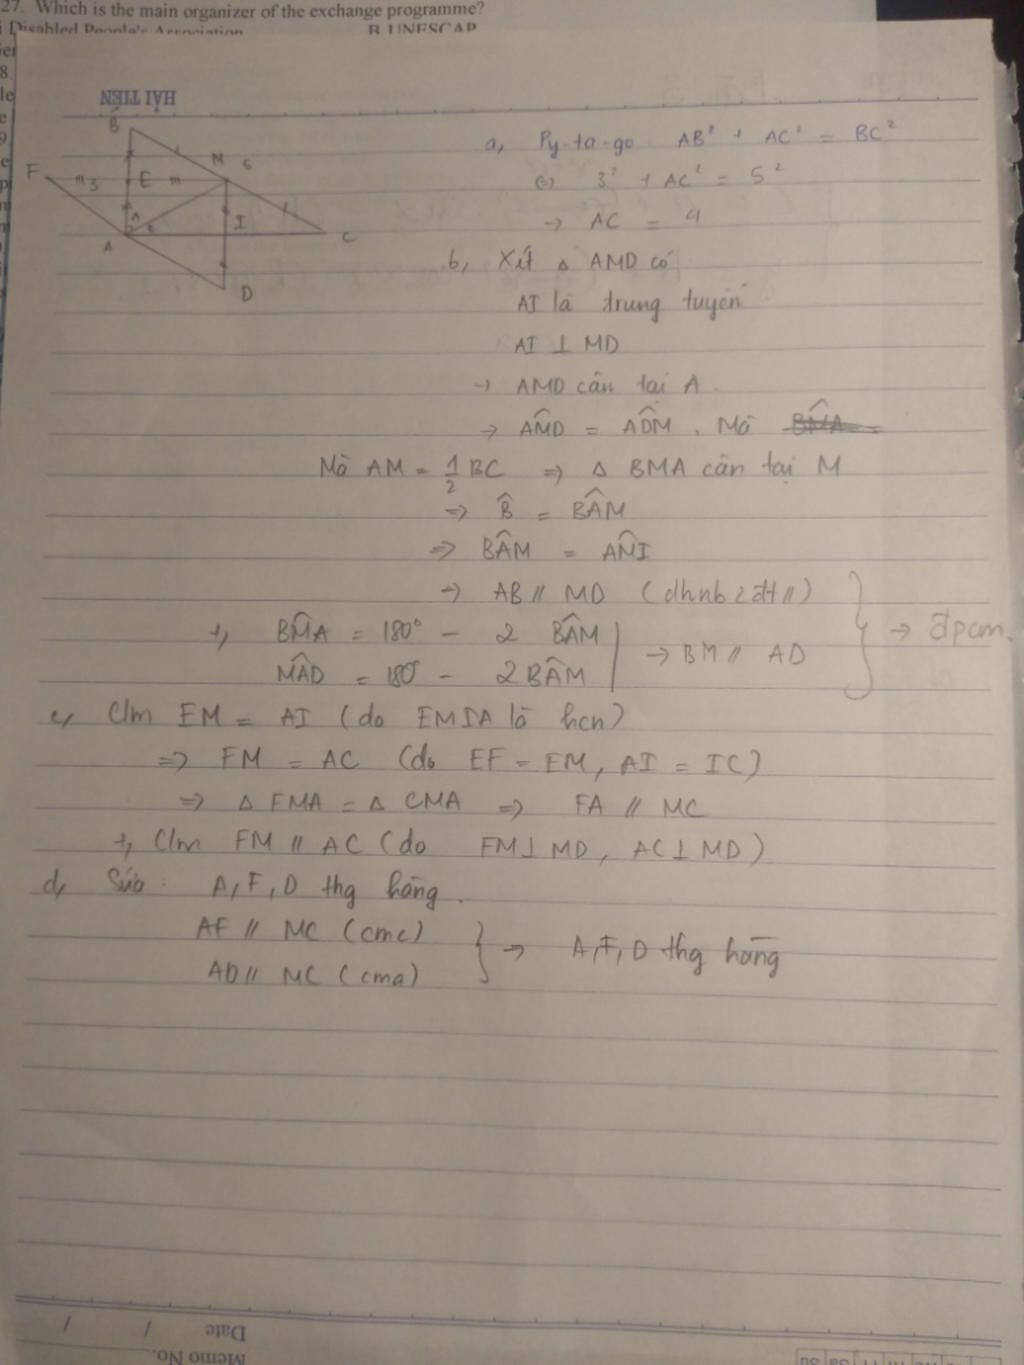 27. Which is the main organizer of the exchange programme?
Disabled People's Association B. UNESCAP
HẢI TIẾN
B
F 3 E M 5
A I C
D
a, Py-ta-go AB² + AC² = BC²
(=) 3² + AC² = 5²
→ AC = 4
b, Xét △ AMD có
AI là trung tuyến
AI ⊥ MD
→ AMD cân tại A.
→ AM̂D = AD̂M . Mà
Mà AM = 1/2 BC => △ BMA cân tại M
=> B̂ = BÂM
=> BÂM = AM̂I
→ AB // MD (dhnb 2đt //)
+, BM̂A = 180° - 2 BÂM
MÂD = 180° - 2BÂM → BM // AD → đpcm.
c, C/m EM = AI (do EMIA là hcn)
=> FM = AC (do EF = EM, AI = IC)
=> △ FMA = △ CMA => FA // MC
+, C/m FM // AC (do FM ⊥ MD, AC ⊥ MD)
d, Sửa : A, F, D thg hàng.
AF // MC (cmc)
AD // MC (cma) → A, F, D thg hàng
Date / /
Memo No.